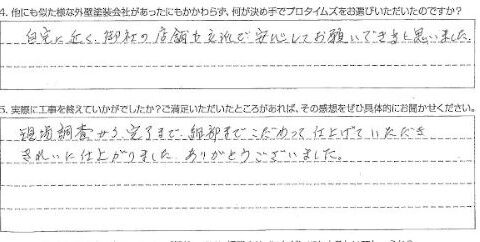 4. 他にも似た様な外壁塗装会社があったにもかかわらず、何が決め手でプロタイムズをお選びいただいたのですか?
自宅に近く、御社の店舗も立派で安心してお願いできると思いました。
5. 実際に工事を終えていかがでしたか?ご満足いただいたところがあれば、その感想をぜひ具体的にお聞かせください。
現場調査から完了まで細部までこだわって仕上げていただき
きれいに仕上がりました。ありがとうございました。